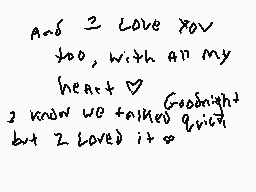 And I Love You
too, with All my
heart ♡
Goodnight
I know we talked quick
but I Loved it ∞